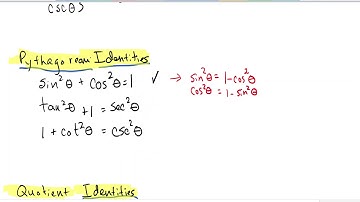 cscθ)
Pythagorean Identities
sin²θ + cos²θ=1 ✓ → sin²θ = 1-cos²θ
cos²θ = 1-sin²θ
tan²θ +1 = sec²θ
1 + cot²θ = csc²θ
Quotient Identities